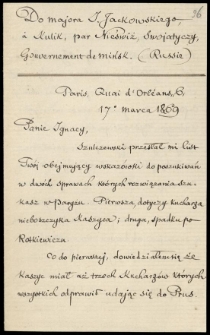 76
Do majora I. Jackowskiego,
z Nalik, par Nieśwież, Swojatycze,
Gouvernement de Mińsk. (Russie)
Paris, Quai d'Orléans, 6.
17° marca 1869
Panie Ignacy,
Szulczewski przesłał mi list
Twój obejmujący wskazówki do poszukiwań
w dwóch sprawach których rozwiązania szu-
kasz w Paryżu. Pierwsza, dotyczy kucharza
nieboszczyka Kaszyca; druga, spadku po
Rostkiewiczu.
Co do pierwszej, dowiedziałem się że
Kaszyc miał aż trzech kucharzy których
wszystkich odprawił udając się do Prus.